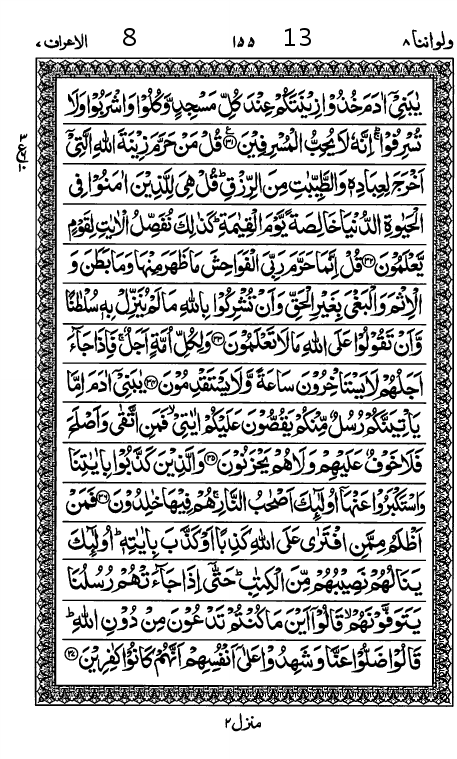 ولواننا ٨ 13 ١٥٥ 8 الاعراف ٧
يٰبَنِيْٓ اٰدَمَ خُذُوْا زِيْنَتَكُمْ عِنْدَ كُلِّ مَسْجِدٍ وَّكُلُوْا وَاشْرَبُوْا وَلَا
تُسْرِفُوْا ۚ اِنَّهٗ لَا يُحِبُّ الْمُسْرِفِيْنَ ﴿٣١﴾ قُلْ مَنْ حَرَّمَ زِيْنَةَ اللّٰهِ الَّتِيْٓ
اَخْرَجَ لِعِبَادِهٖ وَالطَّيِّبٰتِ مِنَ الرِّزْقِ ؕ قُلْ هِيَ لِلَّذِيْنَ اٰمَنُوْا فِي
الْحَيٰوةِ الدُّنْيَا خَالِصَةً يَّوْمَ الْقِيٰمَةِ ؕ كَذٰلِكَ نُفَصِّلُ الْاٰيٰتِ لِقَوْمٍ
يَّعْلَمُوْنَ ﴿٣٢﴾ قُلْ اِنَّمَا حَرَّمَ رَبِّيَ الْفَوَاحِشَ مَا ظَهَرَ مِنْهَا وَمَا بَطَنَ وَ
الْاِثْمَ وَالْبَغْيَ بِغَيْرِ الْحَقِّ وَاَنْ تُشْرِكُوْا بِاللّٰهِ مَا لَمْ يُنَزِّلْ بِهٖ سُلْطٰنًا
وَّاَنْ تَقُوْلُوْا عَلَى اللّٰهِ مَا لَا تَعْلَمُوْنَ ﴿٣٣﴾ وَلِكُلِّ اُمَّةٍ اَجَلٌ ۚ فَاِذَا جَآءَ
اَجَلُهُمْ لَا يَسْتَاْخِرُوْنَ سَاعَةً وَّلَا يَسْتَقْدِمُوْنَ ﴿٣٤﴾ يٰبَنِيْٓ اٰدَمَ اِمَّا
يَاْتِيَنَّكُمْ رُسُلٌ مِّنْكُمْ يَقُصُّوْنَ عَلَيْكُمْ اٰيٰتِيْ ۙ فَمَنِ اتَّقٰى وَاَصْلَحَ
فَلَا خَوْفٌ عَلَيْهِمْ وَلَا هُمْ يَحْزَنُوْنَ ﴿٣٥﴾ وَالَّذِيْنَ كَذَّبُوْا بِاٰيٰتِنَا
وَاسْتَكْبَرُوْا عَنْهَآ اُولٰٓئِكَ اَصْحٰبُ النَّارِ ۚ هُمْ فِيْهَا خٰلِدُوْنَ ﴿٣٦﴾ فَمَنْ
اَظْلَمُ مِمَّنِ افْتَرٰى عَلَى اللّٰهِ كَذِبًا اَوْ كَذَّبَ بِاٰيٰتِهٖ ؕ اُولٰٓئِكَ
يَنَالُهُمْ نَصِيْبُهُمْ مِّنَ الْكِتٰبِ ؕ حَتّٰٓى اِذَا جَآءَتْهُمْ رُسُلُنَا
يَتَوَفَّوْنَهُمْ ۙ قَالُوْٓا اَيْنَ مَا كُنْتُمْ تَدْعُوْنَ مِنْ دُوْنِ اللّٰهِ ؕ
قَالُوْا ضَلُّوْا عَنَّا وَشَهِدُوْا عَلٰٓى اَنْفُسِهِمْ اَنَّهُمْ كَانُوْا كٰفِرِيْنَ ﴿٣٧﴾
منزل ٢